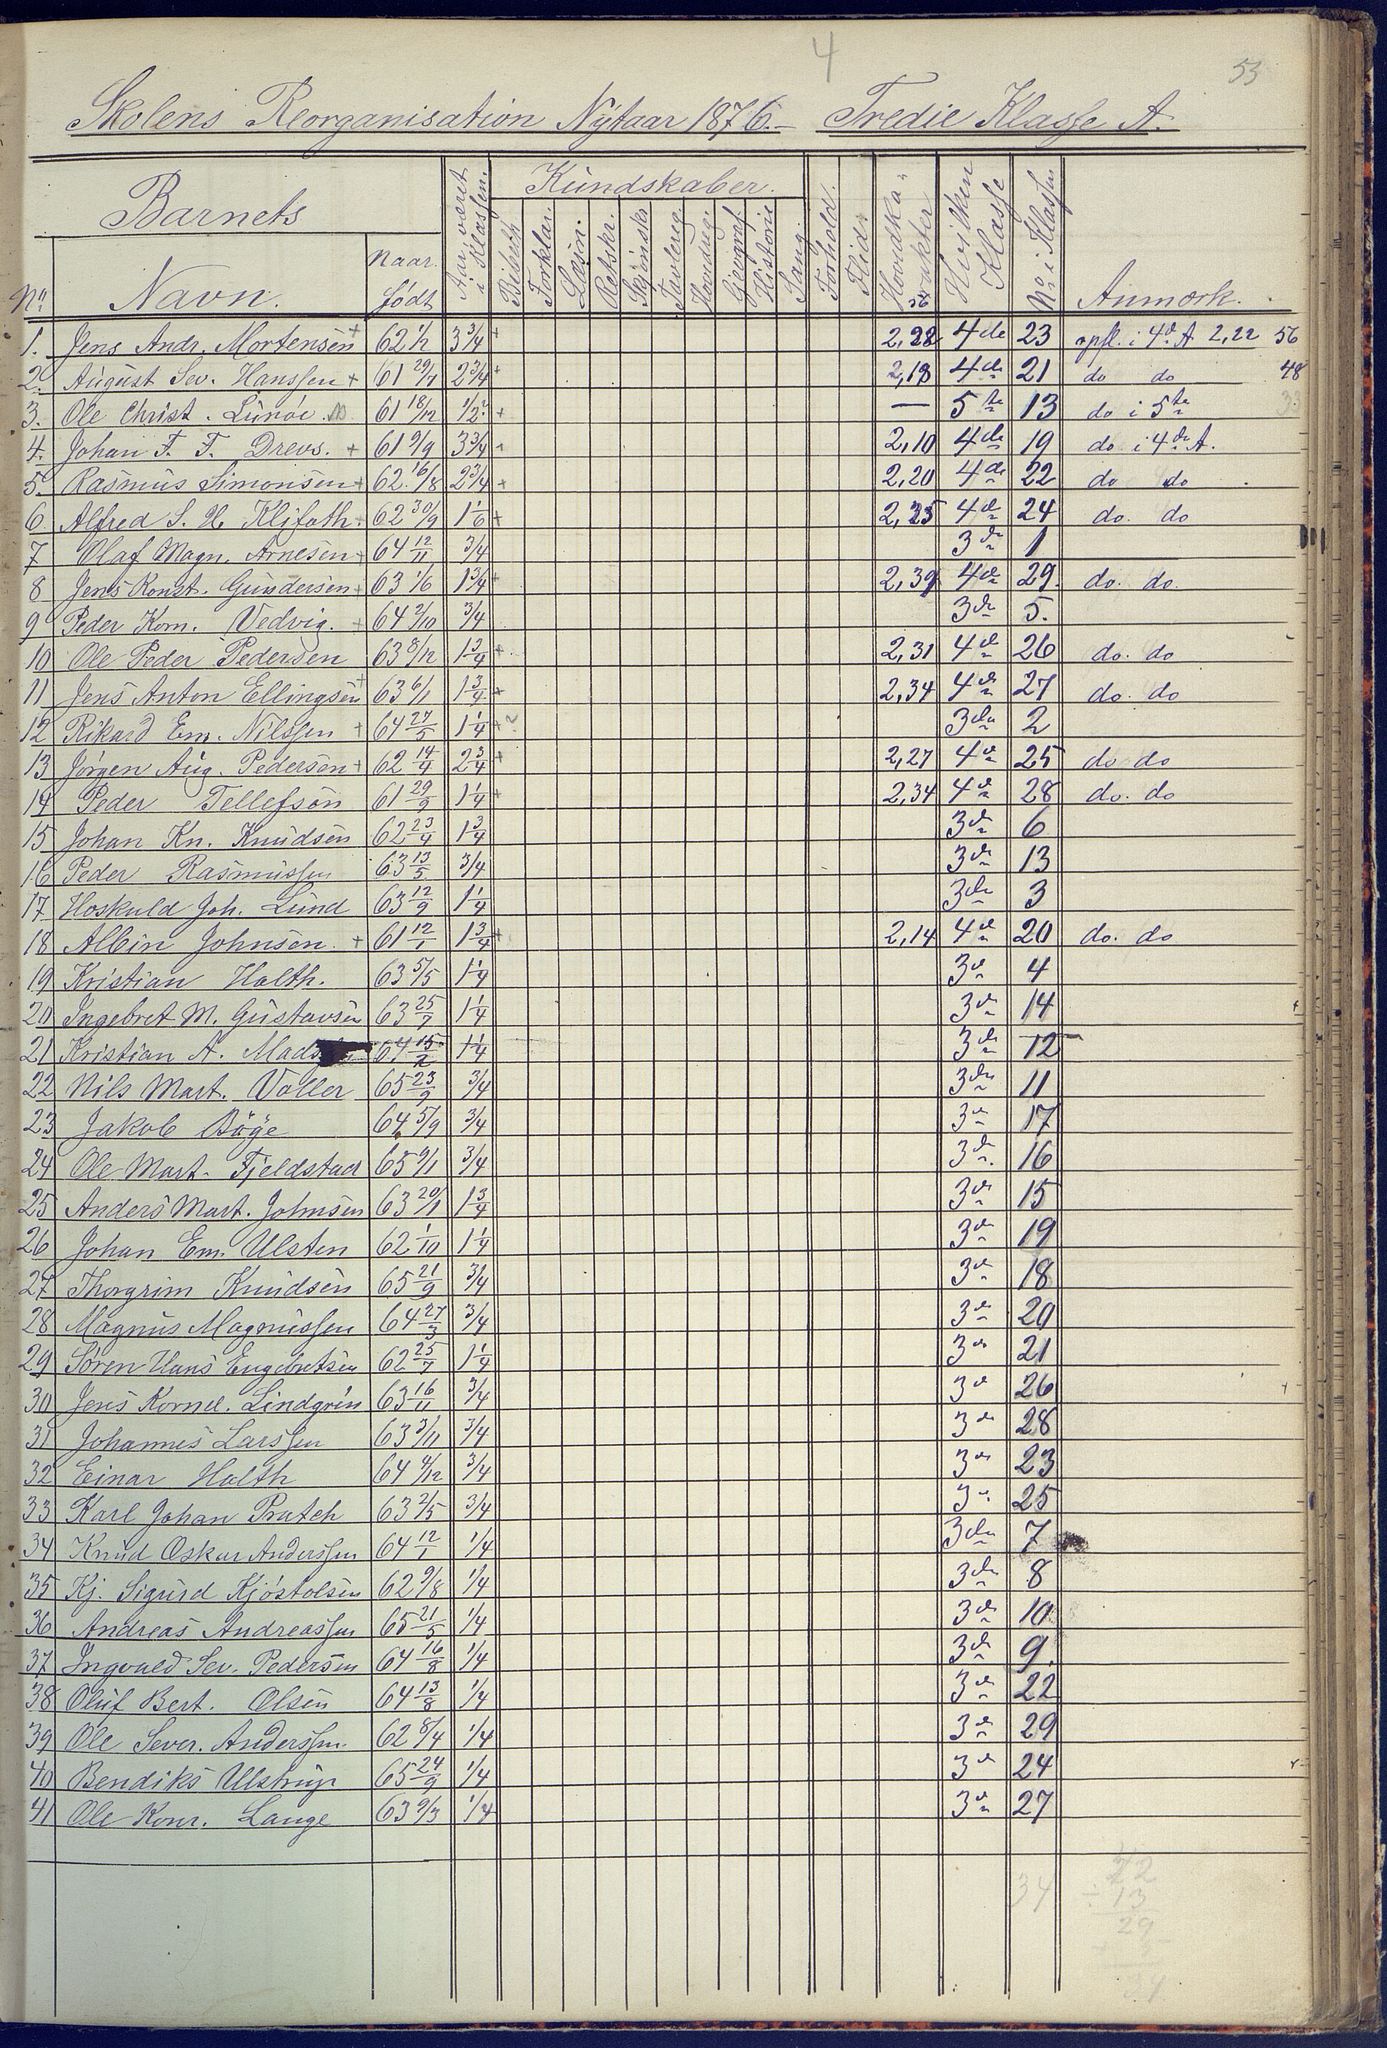 4
53
Skolens Reorganisation Nytaar 1876. – Tredie Klasse A.
No Barnets Navn. Naar født Aar været i Klassen. Kundskaber. Bibelh. Forklar. Læsn. Retskr. Skjönskr. Tavlereg. Hovdreg. Geograf. Historie Sang. Forhold. Flid. Hovedkarakter Hvilken Klasse No i Klassen Anmærk.
1. Jens Andr. Mortensen + 62 1/12 3 3/4 + 2,28 4de 23 opfl. i 4de A 2,22 56
2. August Sev. Hanssen + 61 29/7 2 3/4 + 2,18 4de 21 do do 48
3. Ole Christ. Lunde 61 18/12 1/2 ? + — 5te 13 do i 5te 33
4. Johan F. F. Drews. + 61 9/9 3 3/4 + 2,10 4de 19 do i 4de A.
5. Rasmus Simonsen + 62 16/8 2 3/4 + 2,20 4de 22 do do
6. Alfred S. H. Klifoth + 62 30/9 1 1/6 + 2,25 4de 24 do. do
7 Olaf Magn. Arnesen + 64 12/11 3/4 3de 1
8 Jens Konst. Gundersen + 63 1/6 1 3/4 + 2,39 4de 29. do. do.
9 Peder Korn. Vedvig. + 64 2/10 3/4 3de 5.
10 Ole Peder Pedersen 63 8/12 1 3/4 + 2,31 4de 26 do. do
11 Jens Anton Ellingsen + 63 6/11 1 3/4 + 2,34 4de 27 do. do
12 Rikard Em. Nilssen + 64 27/5 1 1/4 + ? 3de 2
13 Jörgen Aug. Pedersen + 62 14/4 2 3/4 + 2,27 4de 25 do do
14 Peder Tellefsen 61 29/9 1 1/4 + 2,34 4de 28 do. do
15 Johan Kn. Knudsen 62 23/4 1 3/4 3de 6
16 Peder Rasmussen 63 13/5 3/4 3de 13
17 Hoskuld Joh. Lund 63 12/9 1 1/4 3de 3
18 Albin Johnsen. + 61 12/1 1 3/4 + 2,14 4de 20 do. do
19 Kristian Holth. 63 5/5 1 1/4 3de 4
20 Ingebret M. Gustavsen 63 25/7 1 1/4 3de 14
21 Kristian A. 64 15/2 1 1/4 3de 12
22 Nils Mart. Voller 65 23/9 3/4 3de 11
23 Jakob Böge 64 5/9 3/4 3de 17
24 Ole Mart. Fjeldstad 65 9/1 3/4 3de 16
25 Anders Mart. Johnsen 63 20/1 1 3/4 3de 15
26 Johan Em. Ulsten 62 1/10 1 1/4 3de 19
27 Thorgrim Knudsen 65 21/9 3/4 3de 18
28 Magnus Magnussen 64 27/3 3/4 3de 20
29 Sören Hans Engebretsen 62 25/7 1 1/4 3de 21
30 Jens Kornel. Lindgrén 63 16/11 3/4 3de 26
31 Johannes Larssen 63 3/11 3/4 3de 28
32 Einar Holth 64 4/12 3/4 3de 23
33 Karl Johan Pratch 63 2/5 3/4 3de 25
34 Knud Oskar Anderssen 64 12/1 1/4 3de 7
35 Kj. Sigurd Kjöstolsen 62 9/8 1/4 3de 8
36 Andreas Andreassen 65 21/5 1/4 3de 10
37 Ingvald Sev. Pedersen 64 16/8 1/4 3de 9.
38 Oluf Bert. Olsen 64 13/8 1/4 3de 22
39 Ole Sever. Anderssen 62 8/4 1/4 3de 29
40 Bendiks Ulstrup 65 24/9 1/4 3de 24
41 Ole Konr. Lange 63 9/3 1/4 3de 27
34
÷ 13
29
34